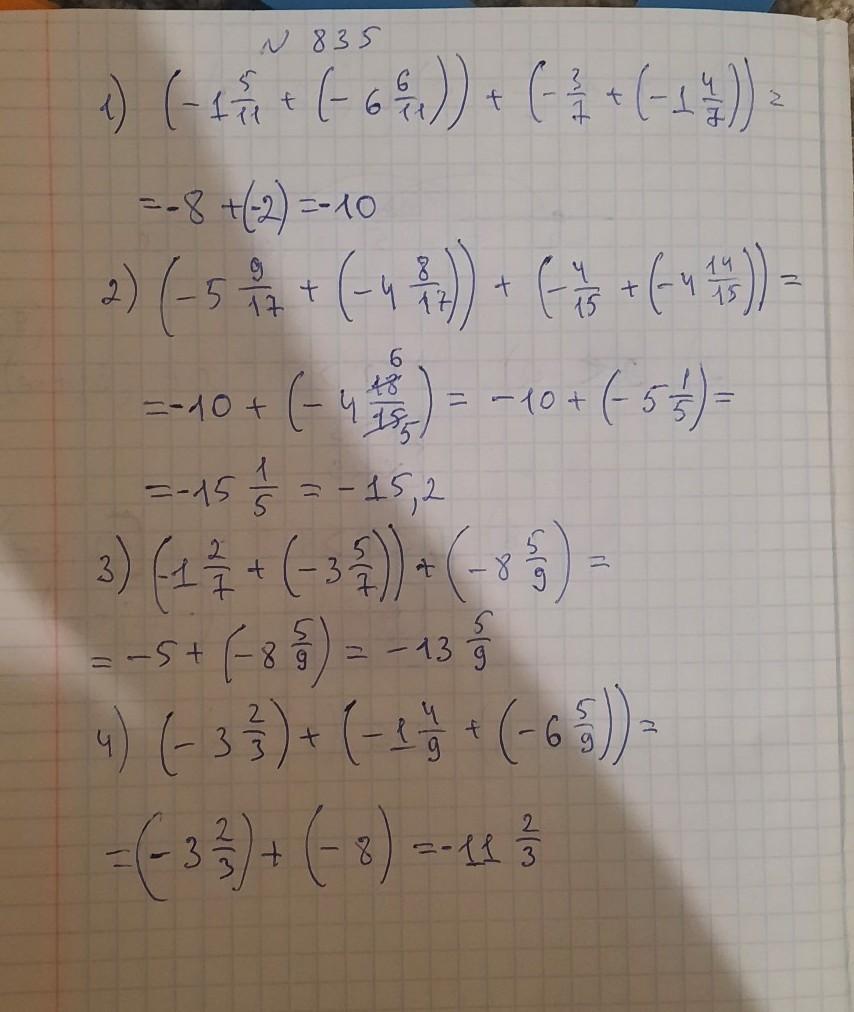 N 835
1) (-1 5/11 + (-6 6/11)) + (-3/7 + (-1 4/7)) =
=-8 +(-2) =-10
2) (-5 9/17 + (-4 8/17)) + (-4/15 + (-4 14/15)) =
=-10 + (-4 18/15 6 5) = -10 + (-5 1/5) =
=-15 1/5 = -15,2
3) (-1 2/7 + (-3 5/7)) + (-8 5/9) =
= -5 + (-8 5/9) = -13 5/9
4) (-3 2/3) + (-1 4/9 + (-6 5/9)) =
=(-3 2/3) + (-8) =-11 2/3